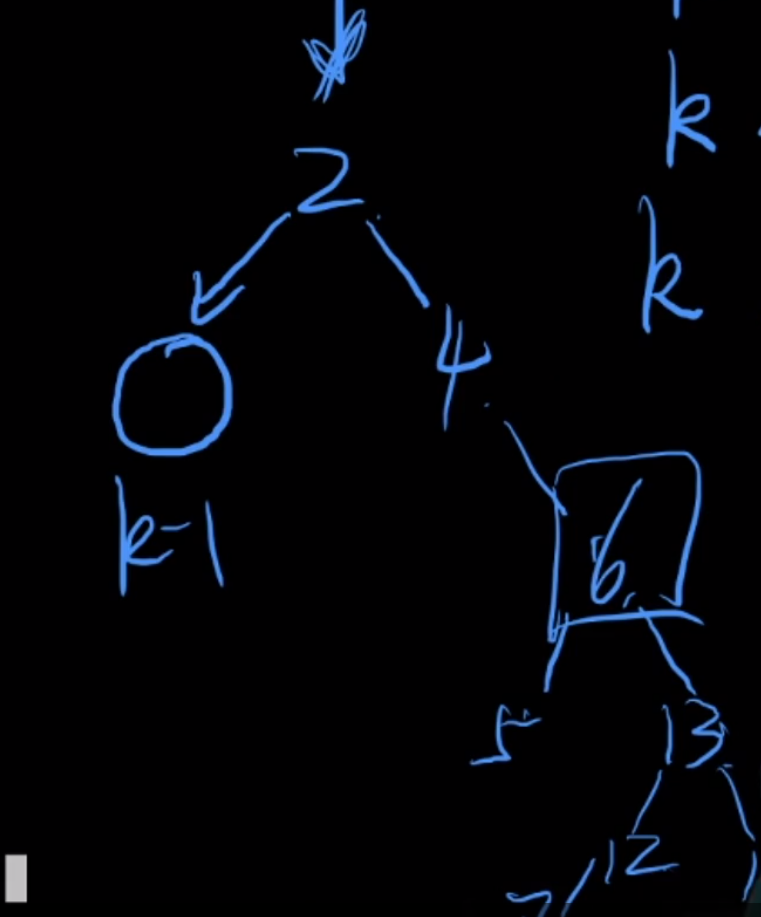 k
2
k
4
k-1
6
5 13
12
7